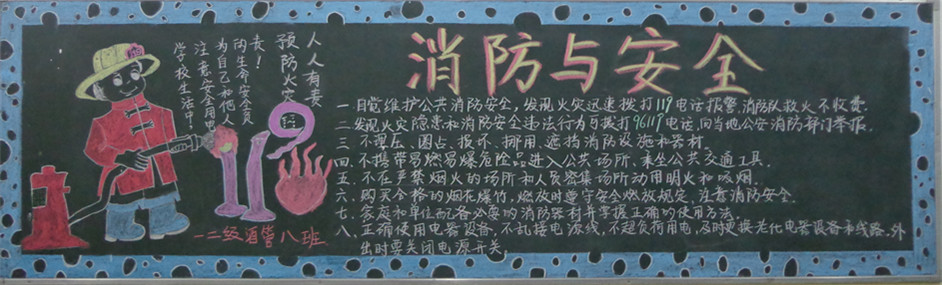 消防与安全
人人有责
预防火灾
责！
的生命安全负
为自己和他人
注意安全用电
学校生活中，
119
一二级酒管八班
一、自觉维护公共消防安全，发现火灾迅速拨打119电话报警，消防队救火不收费。
二、发现火灾隐患和消防安全违法行为可拨打96119电话，向当地公安消防部门举报。
三、不埋压、圈占、损坏、挪用、遮挡消防设施和器材。
四、不携带易燃易爆危险品进入公共场所、乘坐公共交通工具。
五、不在严禁烟火的场所和人员密集场所动用明火和吸烟。
六、购买合格的烟花爆竹，燃放时遵守安全燃放规定，注意消防安全。
七、家庭和单位配备必要的消防器材并掌握正确的使用方法。
八、正确使用电器设备，不乱接电源线，不超负荷用电，及时更换老化电器设备和线路，外
出时要关闭电源开关。